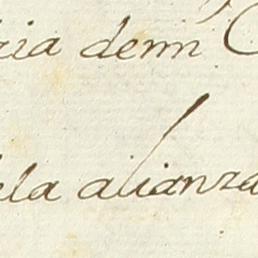 ria denrñ C
dela alianza